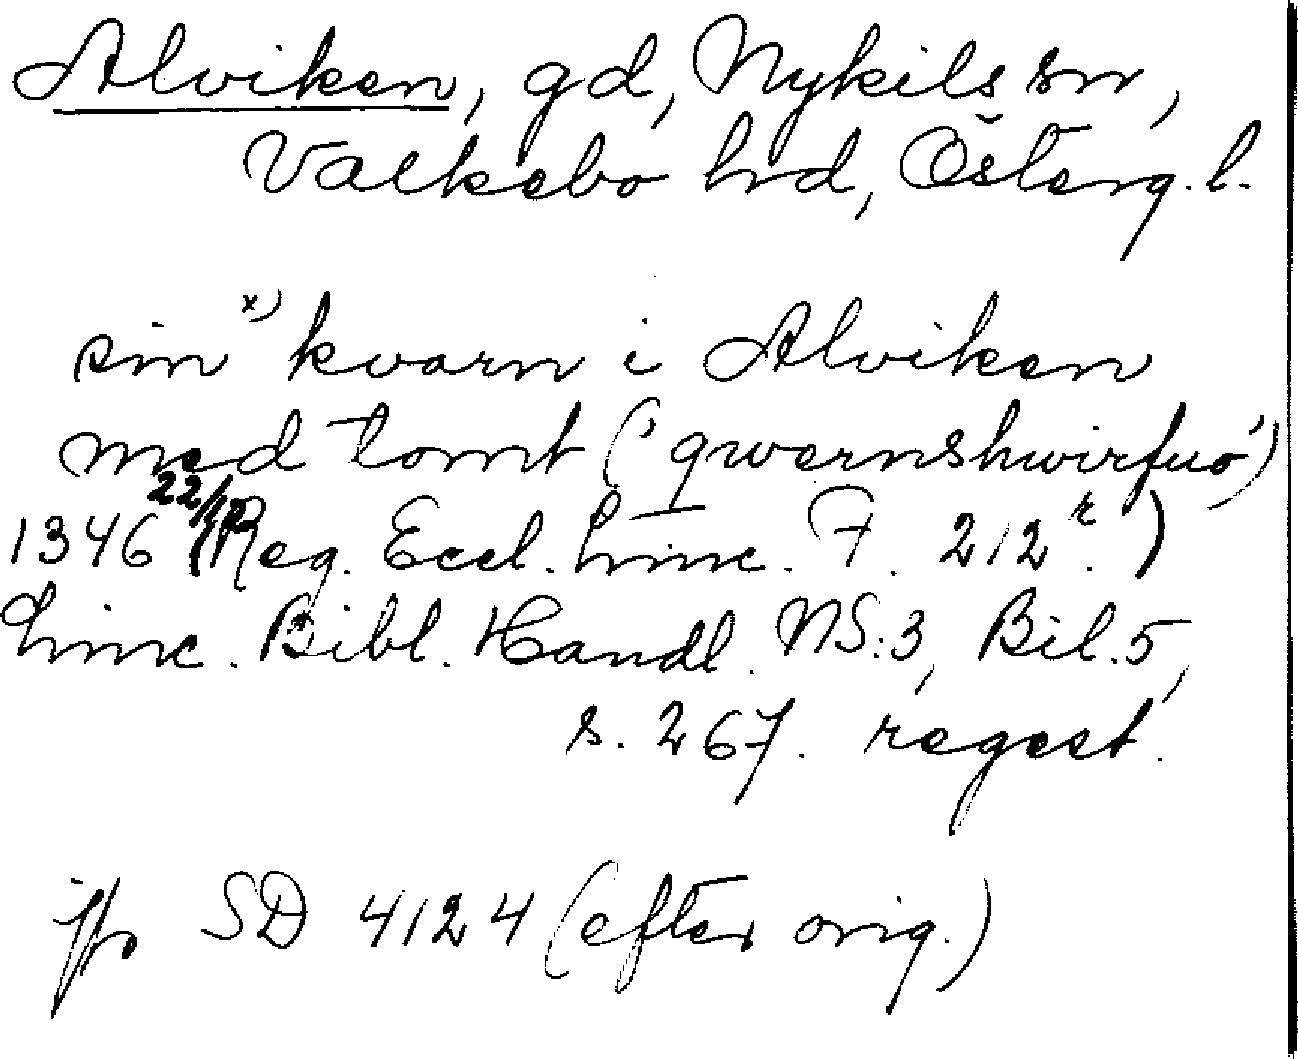 Alviken, gd, Nykils sn,
Valkebo hd, Österg. l.
sin x) kvarn i Alviken
med tomt ('qwernshwirfuo')
1346 22/12 (Reg. Eccl. Linc. F. 212 r.)
Linc. Bibl. Handl. NS:3, Bil. 5,
s. 267. regest.
jfr SD 4124 (efter orig.)